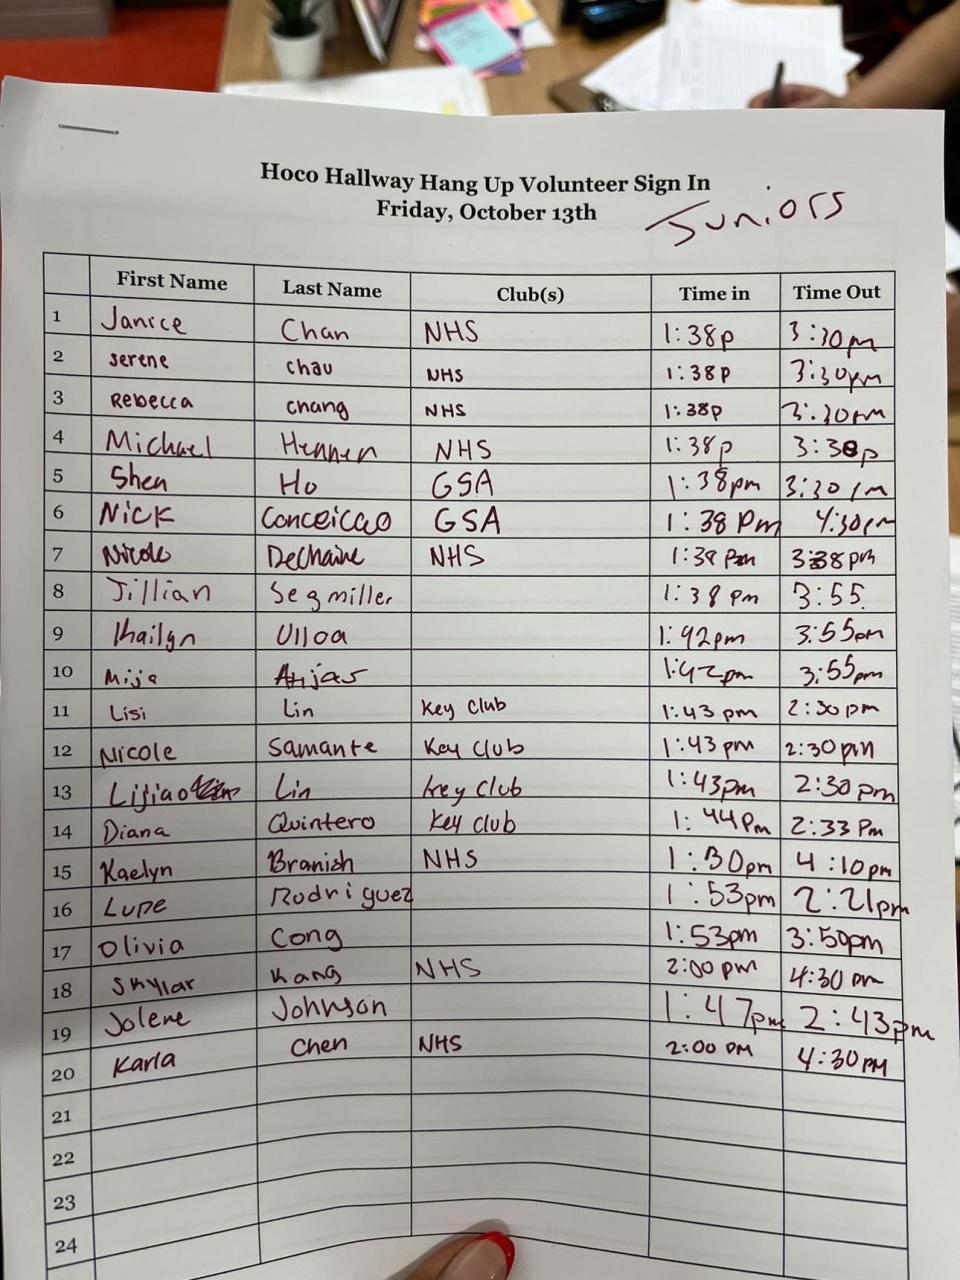 Hoco Hallway Hang Up Volunteer Sign In
Friday, October 13th
Juniors
First Name Last Name Club(s) Time in Time Out
1 Janice Chan NHS 1:38p 3:30pm
2 serene chau NHS 1:38P 3:30pm
3 Rebecca chang NHS 1:38p 3:30pm
4 Michael Hennen NHS 1:38p 3:38p
5 Shea Ho GSA 1:38pm 3:30pm
6 Nick Conceicao GSA 1:38 Pm 4:30pm
7 Nicole Dechaine NHS 1:38 Pm 3:38pm
8 Jillian Segmiller 1:38 pm 3:55
9 Khailyn Ulloa 1:42pm 3:55pm
10 Mija 1:42pm 3:55pm
11 Lisi Lin Key Club 1:43 pm 2:30pm
12 Nicole Samante Key Club 1:43pm 2:30pm
13 Lijiao Lin Key Club 1:43pm 2:30 pm
14 Diana Quintero Key Club 1:44Pm 2:33 Pm
15 Kaelyn Branish NHS 1:30pm 4:10pm
16 Lupe Rodriguez 1:53pm 2:21pm
17 Olivia Cong 1:53pm 3:50pm
18 Skyllar Kang NHS 2:00 pm 4:30 pm
19 Jolene Johnson 1:47pm 2:43pm
20 Karla Chen NHS 2:00 PM 4:30PM
21
22
23
24